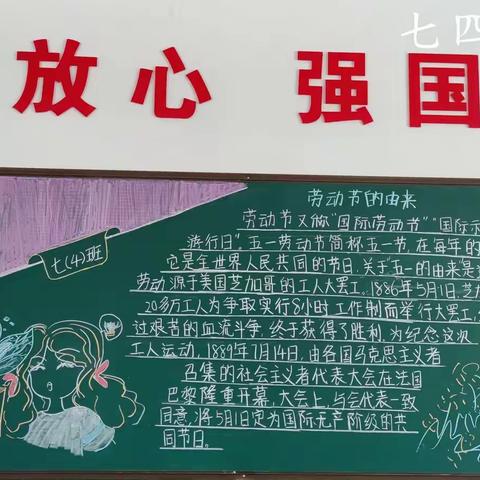 七四
放心 强国
劳动节的由来
七(4)班
劳动节又称"国际劳动节""国际示
游行日"。五一劳动节简称五一节,在每年的
它是全世界人民共同的节日。关于"五一的由来"是
劳动源于美国芝加哥的工人大罢工。1886年5月1日,芝加
20多万工人为争取实行8小时工作制而举行大罢工,
过艰苦的血流斗争,终于获得了胜利。为纪念这次
工人运动,1889年7月14日,由各国马克思主义者
召集的社会主义者代表大会在法国
巴黎隆重开幕。大会上,与会代表一致
同意:将5月1日定为国际无产阶级的共
同节日。